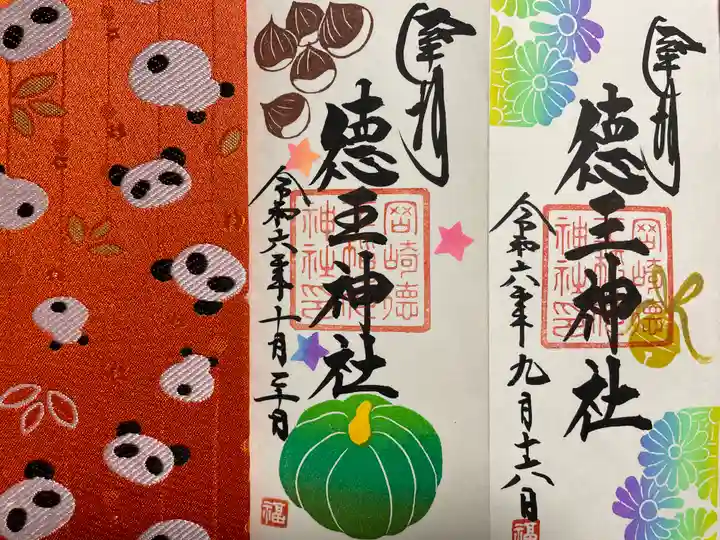 奉拝
徳王神社
岡崎徳
王稲荷
神社印
令和六年十月二十日
福
奉拝
徳王神社
岡崎徳
王稲荷
神社印
令和六年九月十六日
福